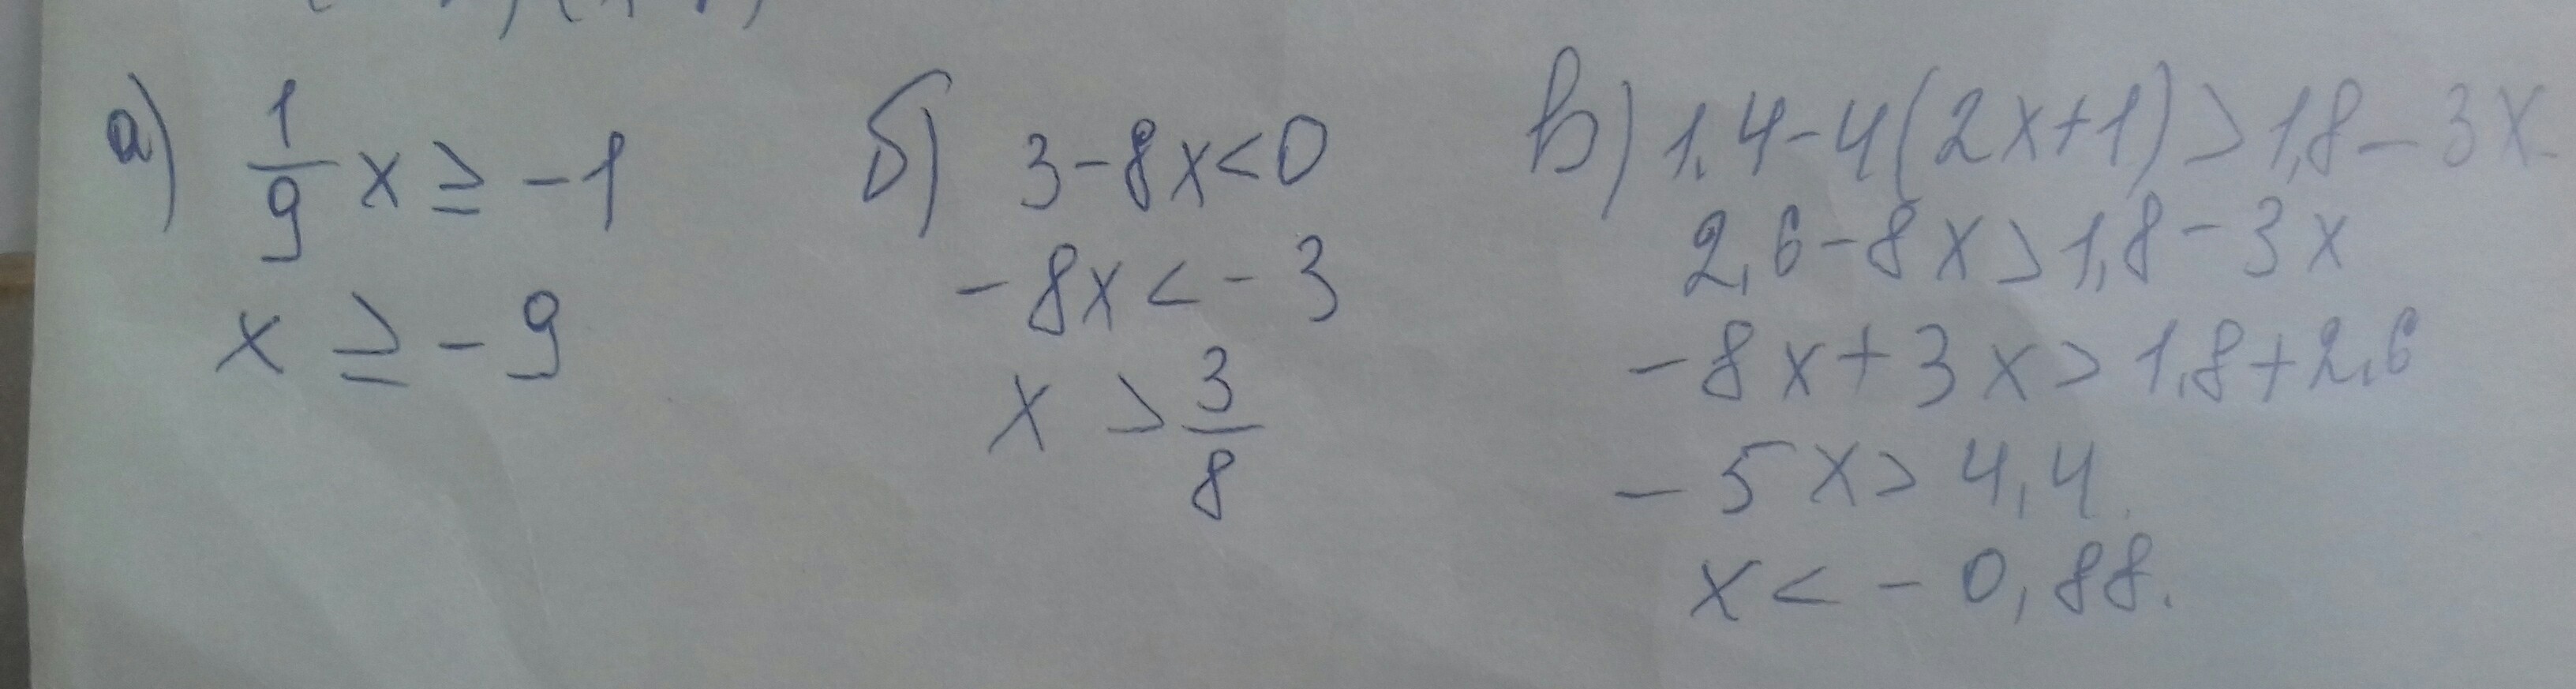 а) 1/9 x ≥ -1
x ≥ -9
б) 3-8x<0
-8x<-3
x > 3/8
в) 1,4-4(2x+1)>1,8-3x
2,6-8x>1,8-3x
-8x+3x>1,8+2,6
-5x>4,4
x<-0,88.